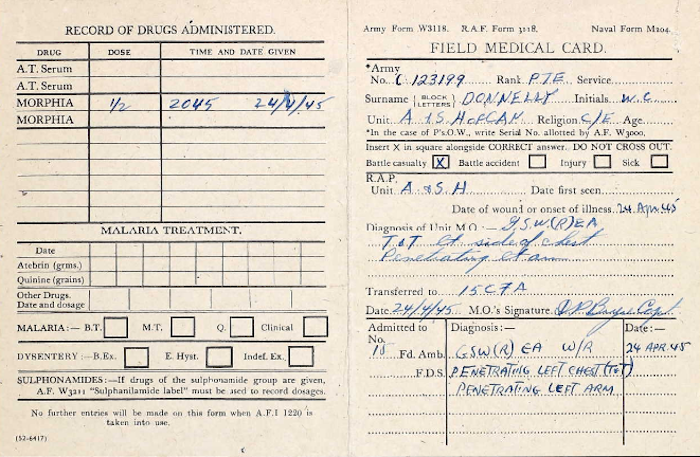 RECORD OF DRUGS ADMINISTERED.
DRUG DOSE TIME AND DATE GIVEN
A.T. Serum
A.T. Serum
MORPHIA 1/2 2045 24/4/45
MORPHIA
MALARIA TREATMENT.
Date
Atebrin (grms.)
Quinine (grains)
Other Drugs.
Date and dosage
MALARIA:— B.T. M.T. Q. Clinical
DYSENTERY:—B.Ex. E. Hyst. Indef. Ex.
SULPHONAMIDES:—If drugs of the sulphonamide group are given,
A.F. W3211 "Sulphanilamide label" must be used to record dosages.
No further entries will be made on this form when A.F.I 1220 is
taken into use.
(52-6417)
Army Form W3118. R.A.F. Form 3118. Naval Form M204.
FIELD MEDICAL CARD.
*Army
No. C 123199 Rank PTE Service
Surname (BLOCK LETTERS) DONNELLY Initials W.C.
Unit A & S H of CAN Religion C/E Age
*In the case of P's.O.W., write Serial No. allotted by A.F. W3000.
Insert X in square alongside CORRECT answer. DO NOT CROSS OUT.
Battle casualty X Battle accident Injury Sick
R.A.P.
Unit A & S H Date first seen
Date of wound or onset of illness. 24 Apr 45
Diagnosis of Unit M.O.:— G.S.W.(R) EA
T & T lt side of chest
Penetrating lt arm
Transferred to 15 CFA
Date 24/4/45 M.O.'s Signature Capt
Admitted to Diagnosis:— Date:—
No.
15 Fd. Amb. GSW(R) EA W/R 24 APR 45
F.D.S. PENETRATING LEFT CHEST (T&T)
PENETRATING LEFT ARM